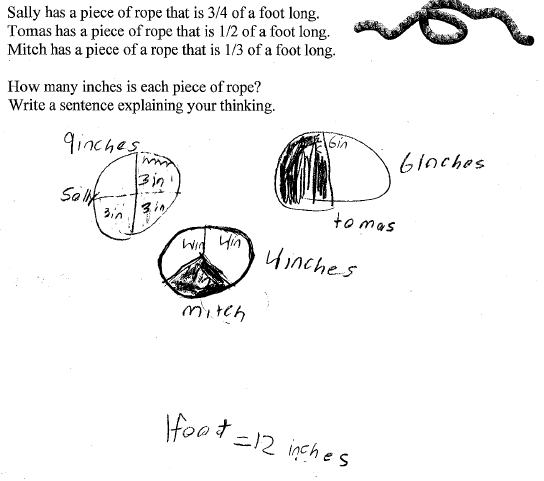 Sally has a piece of rope that is 3/4 of a foot long.
Tomas has a piece of rope that is 1/2 of a foot long.
Mitch has a piece of a rope that is 1/3 of a foot long.
How many inches is each piece of rope?
Write a sentence explaining your thinking.
9inches
3in
Sally
3in
3in
6in
6Inches
tomas
4in
4inches
mitch
1foot =12 inches